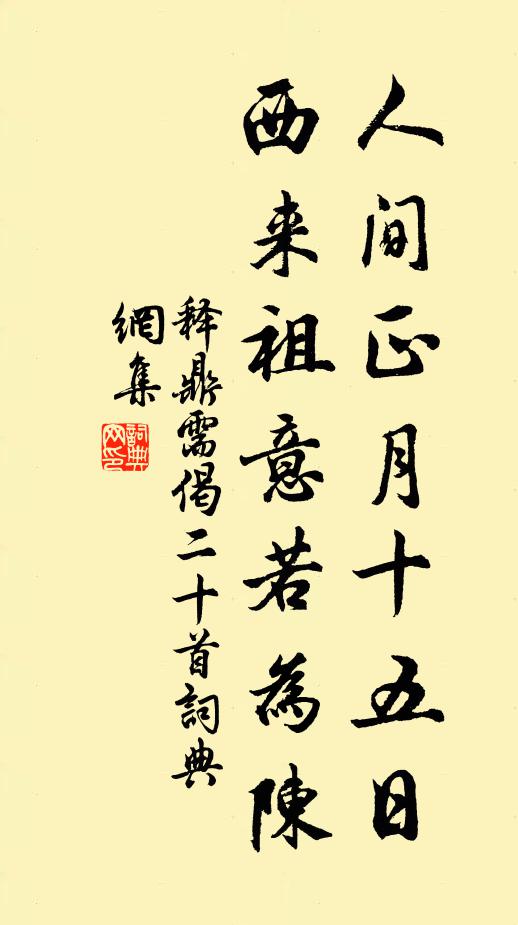 人间正月十五日
西来祖意若為陳
释鼎需偈二十首詞典
網集
詞典
网印